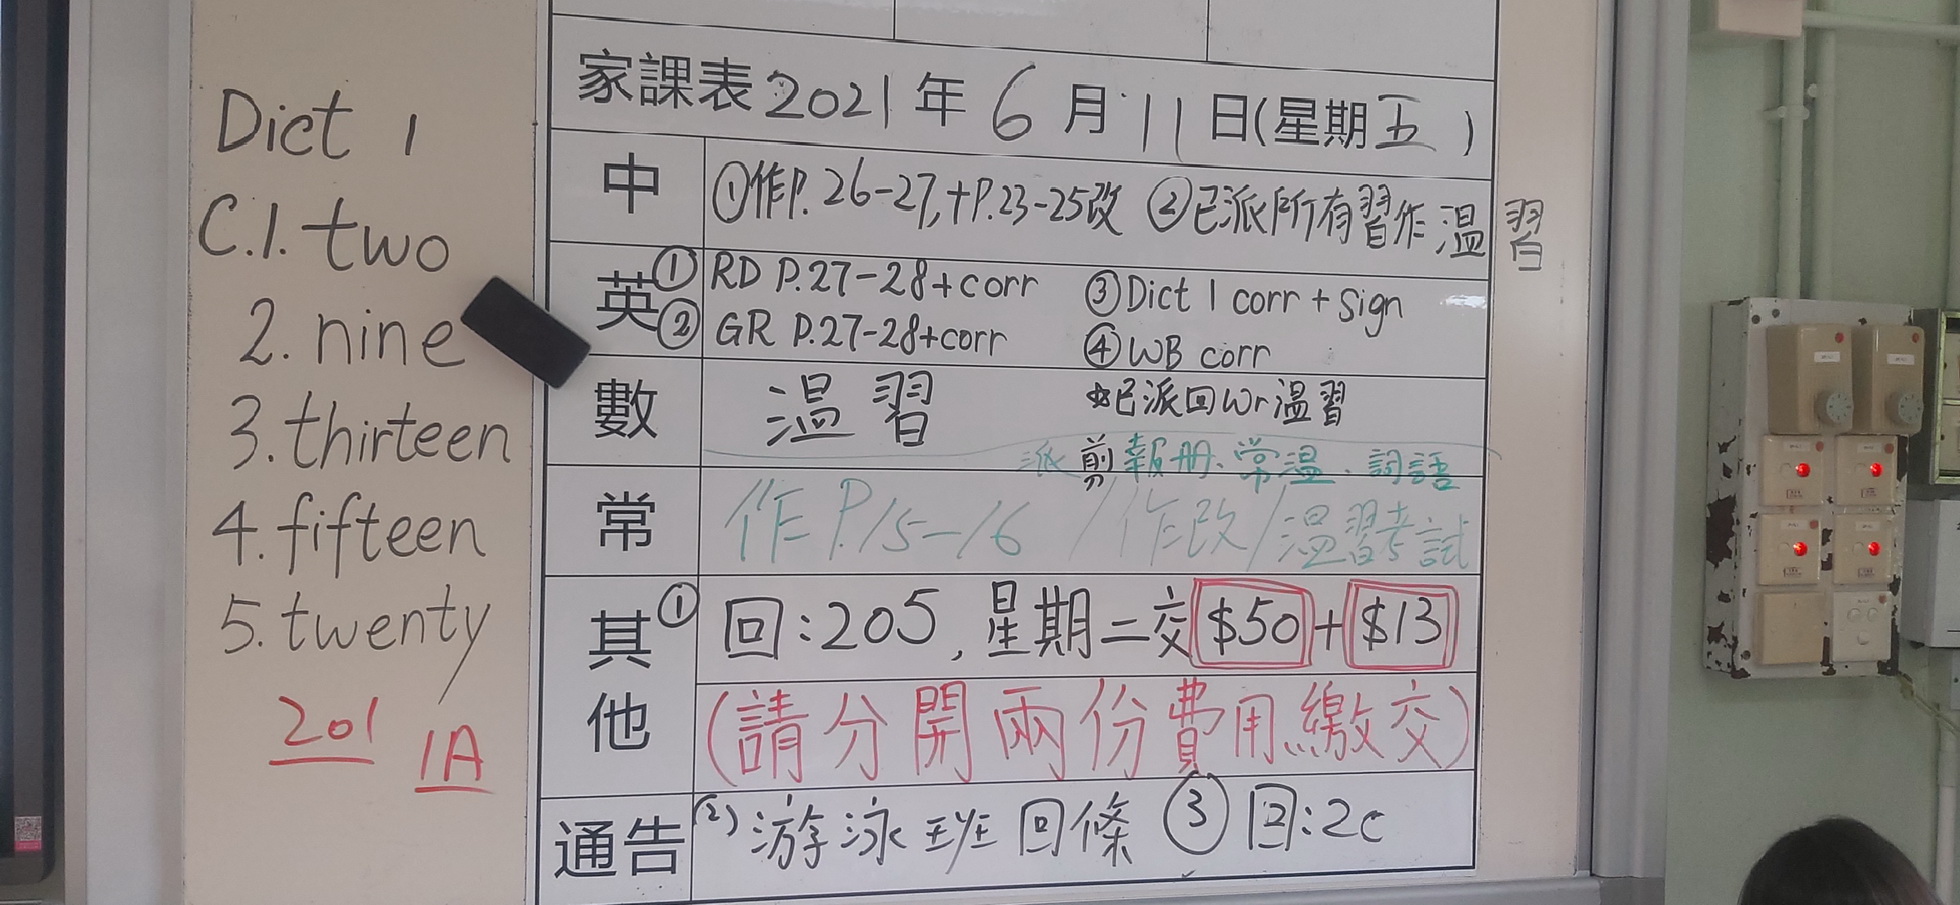 Dict 1
C.1. two
2. nine
3. thirteen
4. fifteen
5. twenty
201 1A
家課表2021年6月11日(星期五)
中 ①作P.26-27,+P.23-25改 ②已派所有習作溫習
英 ① RD P.27-28+corr ③Dict 1 corr + Sign
② GR P.27-28+corr ④WB corr
數 溫習 *已派回Wr溫習
派剪報冊、常溫、詞語
常 作P.15-16/作改/溫習考試
其他 ① 回:205,星期二交$50+$13
(請分開兩份費用繳交)
通告 (2)游泳班回條 ③回:2c